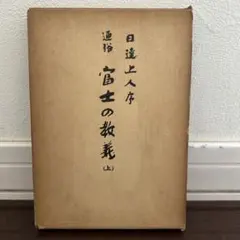 日達上人序
通俗
富士の教義
(上)